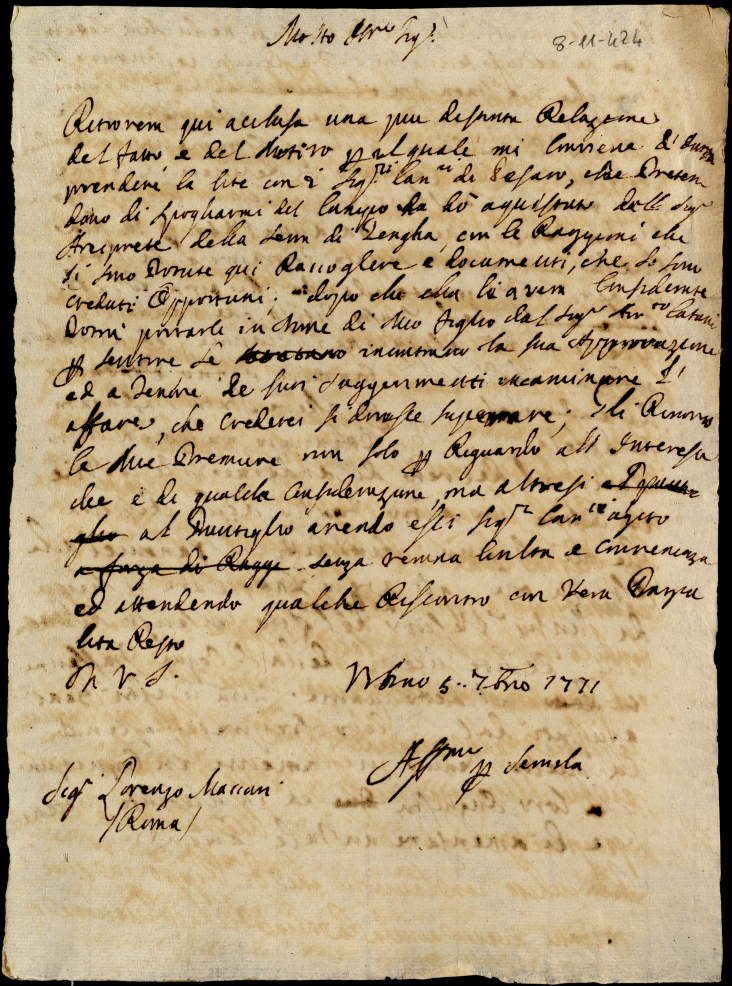 Molto Ill.re Sig.r
8-11-424
Ritroverà qui acclusa una più distinta Relazione
del fatto, e del Motivo p il quale mi conviene d'
prendere la lite con i Sig.ri Can.ci di Pesaro, che Preten
dono di spogliarmi del Campo da hò aquistato dall Sig.r
Arciprete della Serra di Genga, con le Raggioni che
si sono Potute qui Raccogliere e documenti, che si sono
creduti Opportuni; dopo che ella li averà Considerate
Potrà portarle in Nome di Mio figlio dal Sig.r Avv.to Catani
p sentire sè incontrano la sua Approvazione
ed a tenore de suoi Suggerimenti incaminare l'
affare, che crederei si dovesse superare; Gli Rinovo
le Mie Premure non solo p Riguardo all Interesse
che è di qualche considerazione, ma altresì a Puntiglio
glio al Puntiglio avendo essi Sig.ri Can.ci agito
a forza di Raggi senza veruna Civiltà e Convenienza
ed attendendo qualche Riscontro con Vera Parzia
lità Resto
Di V S.
Urbino 5. 7bre 1771
Aff.mo
p Servirla
Sig.r Lorenzo Maccari
/Roma/